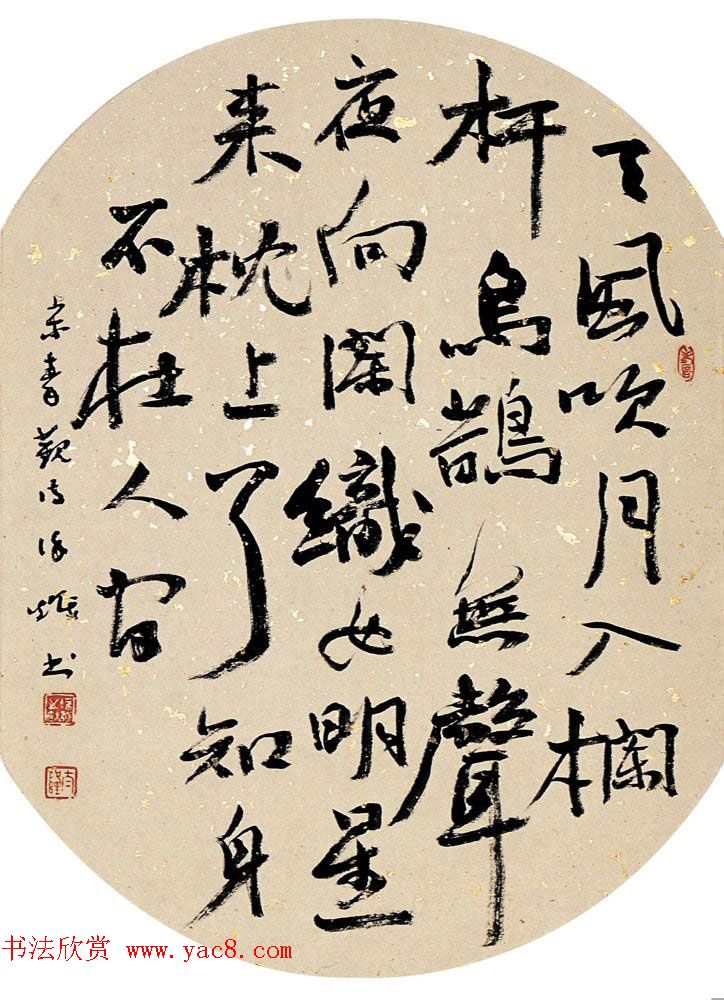 天風吹月入欄
杆烏鵲無聲
夜向闌織女明星
来枕上了知身
不在人间
觀诗 书
书法欣赏 www.yac8.com